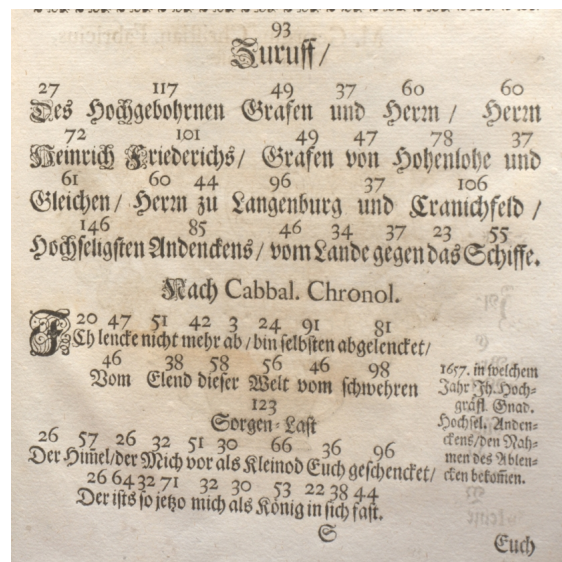 93
Zuruff /
27 117 49 37 60 60
Des Hochgebohrnen Grafen und Herrn / Herrn
72 101 49 47 78 37
Heinrich Friederichs / Grafen von Hohenlohe und
61 60 44 96 37 106
Gleichen / Herrn zu Langenburg und Cranichfeld /
146 85 46 34 37 23 55
Hochseligsten Andenckens / vom Lande gegen das Schiffe.
Nach Cabbal. Chronol.
20 47 51 42 3 24 91 81
ICh lencke nicht mehr ab / bin selbsten abgelencket /
46 38 58 56 46 98
Vom Elend dieser Welt vom schwehren
123
Sorgen-Last
26 57 26 32 51 30 66 36 96
Der Him̃el / der Mich vor als Kleinod Euch geschencket /
26 64 32 71 32 30 53 22 38 44
Der ists so jetzo mich als König in sich fast.
1657. in welchem
Jahr Ih. Hoch-
gräfl. Gnad.
Hochsel. Anden-
ckens / den Nah-
men des Ablen-
cken bekom̃en.
S
Euch